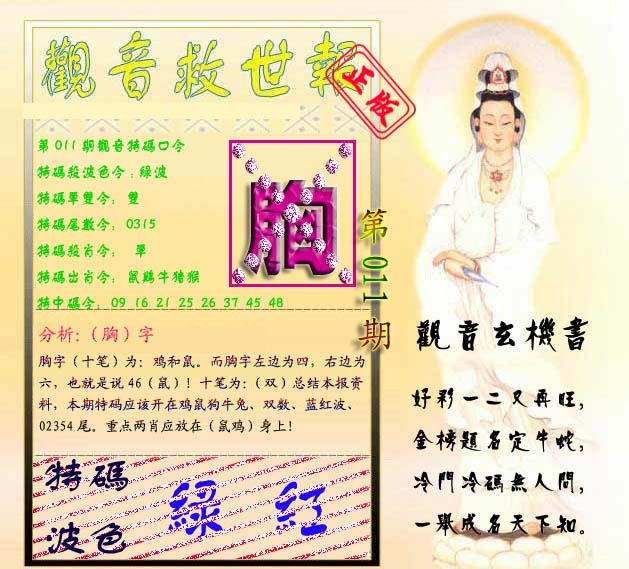 觀音救世報
正版
第011期觀音特碼口令
特碼殺波色令：綠波
特碼單雙令： 雙
特碼尾數令： 0315
特碼殺肖令： 單
特碼出肖令： 鼠鷄牛猪猴
特中碼令： 09 16 21 25 26 37 45 48
胸
第011期
分析:（胸）字
胸字（十笔）为：鸡和鼠。而胸字左边为四，右边为
六，也就是说 46（鼠）！十笔为:（双）总结本报资
料，本期特码应该开在鸡鼠狗牛兔、双数、蓝红波、
02354 尾。重点两肖应放在（鼠鸡）身上！
特碼
波色
綠 紅
觀音玄機書
好彩一二又再旺，
金榜題名定牛蛇，
冷門冷碼無人問，
一舉成名天下知。